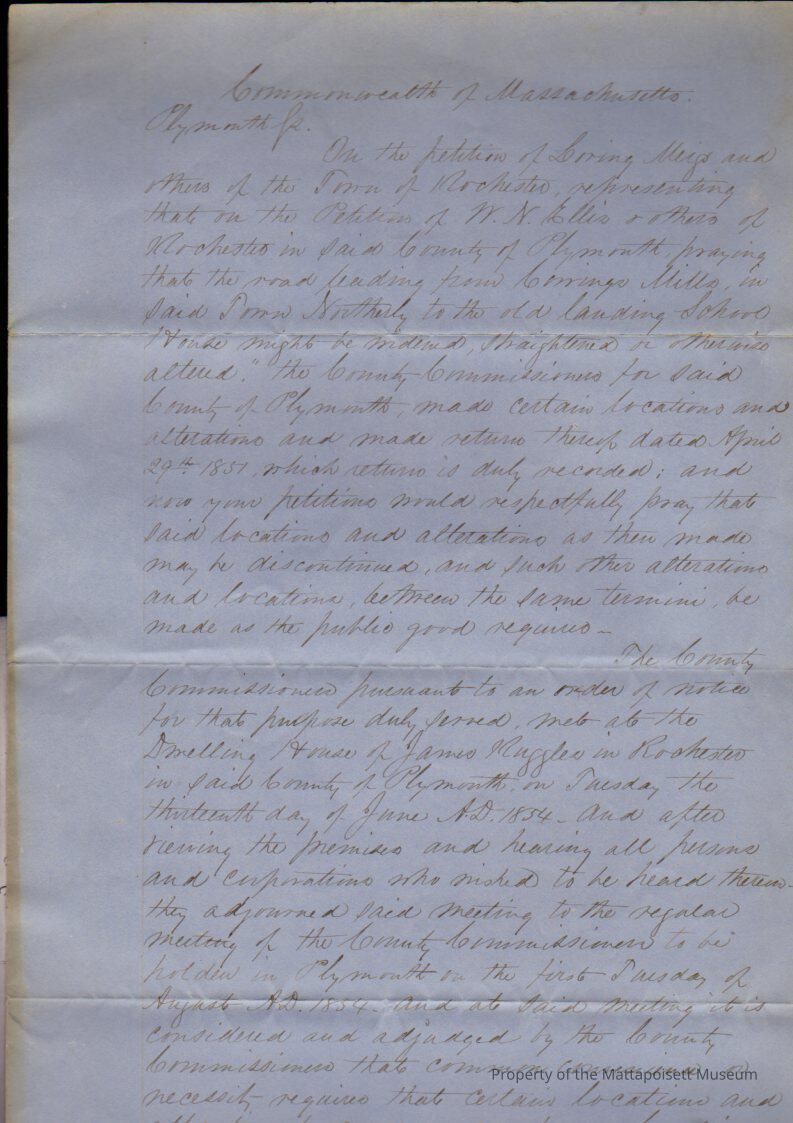 Commonwealth of Massachusetts.
Plymouth Ss.
On the petition of Loring Meigs and
others of the Town of Rochester, representing
that on the Petition of W. N. Ellis & others of
Rochester in said County of Plymouth, praying
that the road leading from Mills, in
said Town Northerly to the old landing School
House might be widened, straightened or otherwise
altered." the County Commissioners for said
County of Plymouth, made certain locations and
alterations and made return thereof dated April
29th 1851, which return is duly recorded; and
now your petitions would respectfully pray that
said locations and alterations as then made
may be discontinued, and such other alterations
and locations, between the same termini, be
made as the public good requires -
The County
Commissioners pursuant to an order of notice
for that purpose duly served, met at the
Dwelling House of James Ruggles in Rochester
in said County of Plymouth, on Tuesday the
thirteenth day of June A.D. 1854. And after
viewing the premises and hearing all persons
and corporations who wished to be heard therein
they adjourned said meeting to the regular
meeting of the County Commissioners to be
holden in Plymouth on the first Tuesday of
August A.D. 1854. And at said meeting it is
considered and adjudged by the County
Commissioners that common convenience or
Property of the Mattapoisett Museum
necessity requires that certain locations and